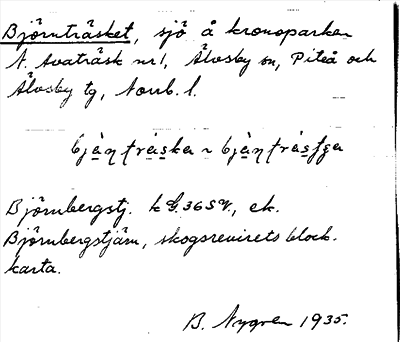 Björnträsket, sjö å kronoparken
N. Avaträsk nr 1, Älvsby sn, Piteå och
Älvsby tg, Norrb. l.
Björnbergstj. k G. 36 SV, ek.
Björnbergstjärn, skogsrevirets block-
karta.
B. Nygren 1935.